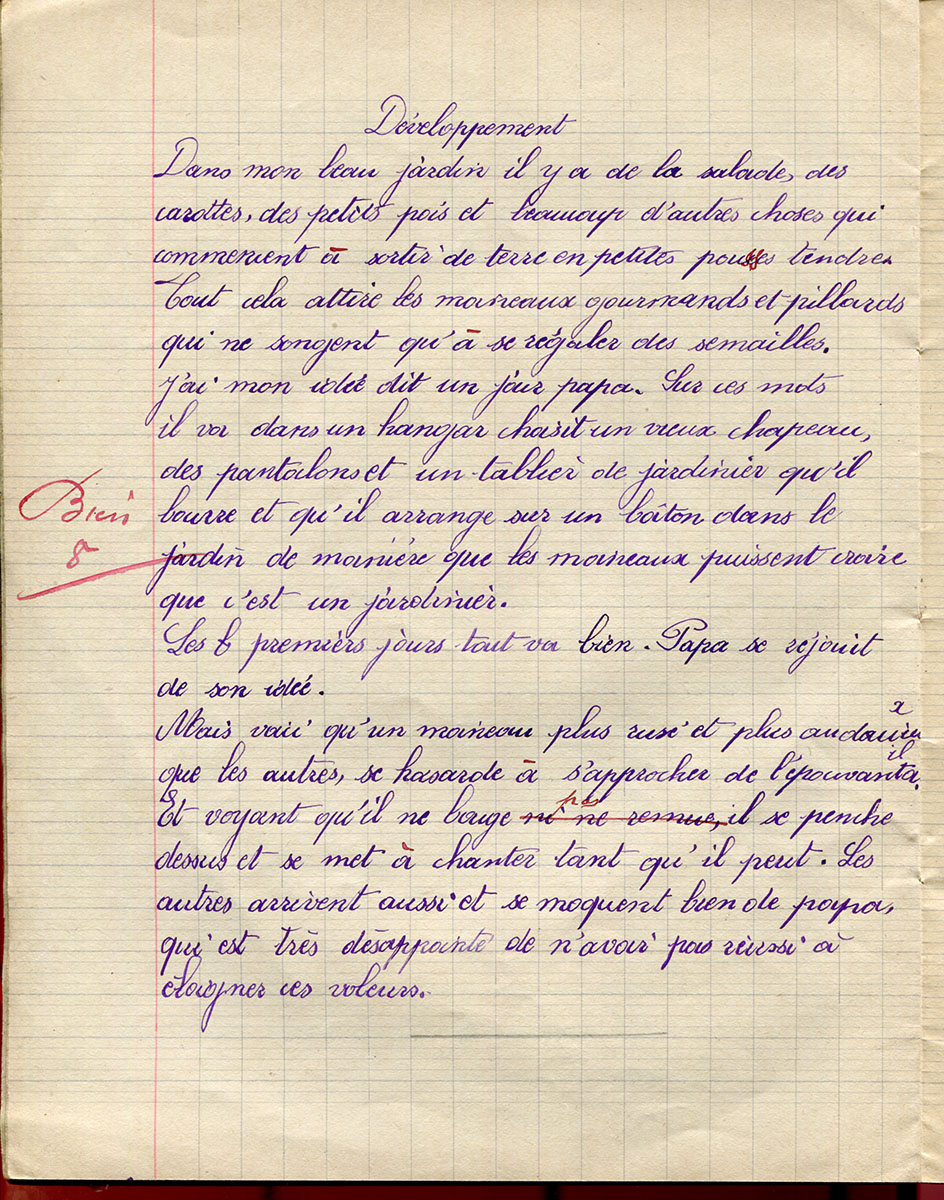 Développement
Dans mon beau jardin il y a de la salade, des
carottes, des petits pois et beaucoup d'autres choses qui
commencent à sortir de terre en petites pousses tendres
Tout cela attire les moineaux gourmands et pillards
qui ne songent qu'à se régaler des semailles.
J'ai mon idée dit un jour papa. Sur ces mots
il va dans un hangar choisit un vieux chapeau,
des pantalons et un tablier de jardinier qu'il
Bien
bourre et qu'il arrange sur un bâton dans le
8
jardin de manière que les moineaux puissent croire
que c'est un jardinier.
Les 6 premiers jours tout va bien. Papa se réjouit
de son idée.
Mais voici qu'un moineau plus rusé et plus audacieu
x
que les autres, se hasarde à s'approcher de l'épouvanta
il
Et voyant qu'il ne bouge ni ne remue, il se penche
pas
dessus et se met à chanter tant qu'il peut. Les
autres arrivent aussi et se moquent bien de papa,
qui est très désappointé de n'avoir pas réussi à
éloigner ces voleurs.